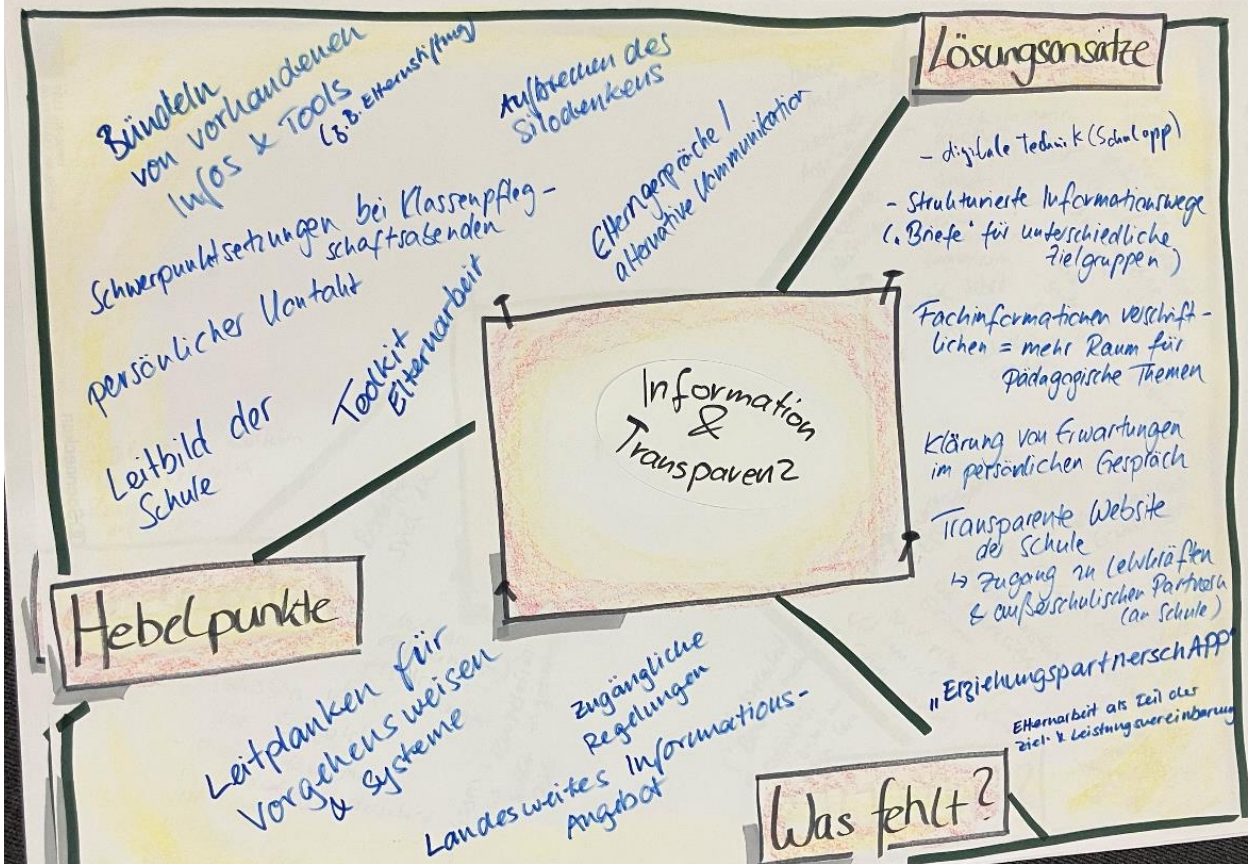 Bündeln
von vorhandenen
Infos & Tools
(z.B. Elternstiftung)
Aufbrechen des
Silodenkens
Elterngespräche /
alternative Kommunikation
Schwerpunktsetzungen bei Klassenpfleg-
schaftsabenden
persönlicher Kontakt
Toolkit
Elternarbeit
Leitbild der
Schule
Hebelpunkte
Information
&
Transparenz
Lösungsansätze
- digitale Technik (Schulapp)
- Strukturierte Informationswege
(„Briefe" für unterschiedliche
Zielgruppen)
Fachinformationen verschrift-
lichen = mehr Raum für
Pädagogische Themen
Klärung von Erwartungen
im persönlichen Gespräch
Transparente Website
der Schule
↳ Zugang zu Lehrkräften
& außerschulischen Partnern
(an Schule)
„ErziehungspartnerschAPP"
Elternarbeit als Teil der
Ziel- & Leistungsvereinbarung
Leitplanken für
Vorgehensweisen
& Systeme
zugängliche
Regelungen
Landesweites Informations-
Angebot
Was fehlt?